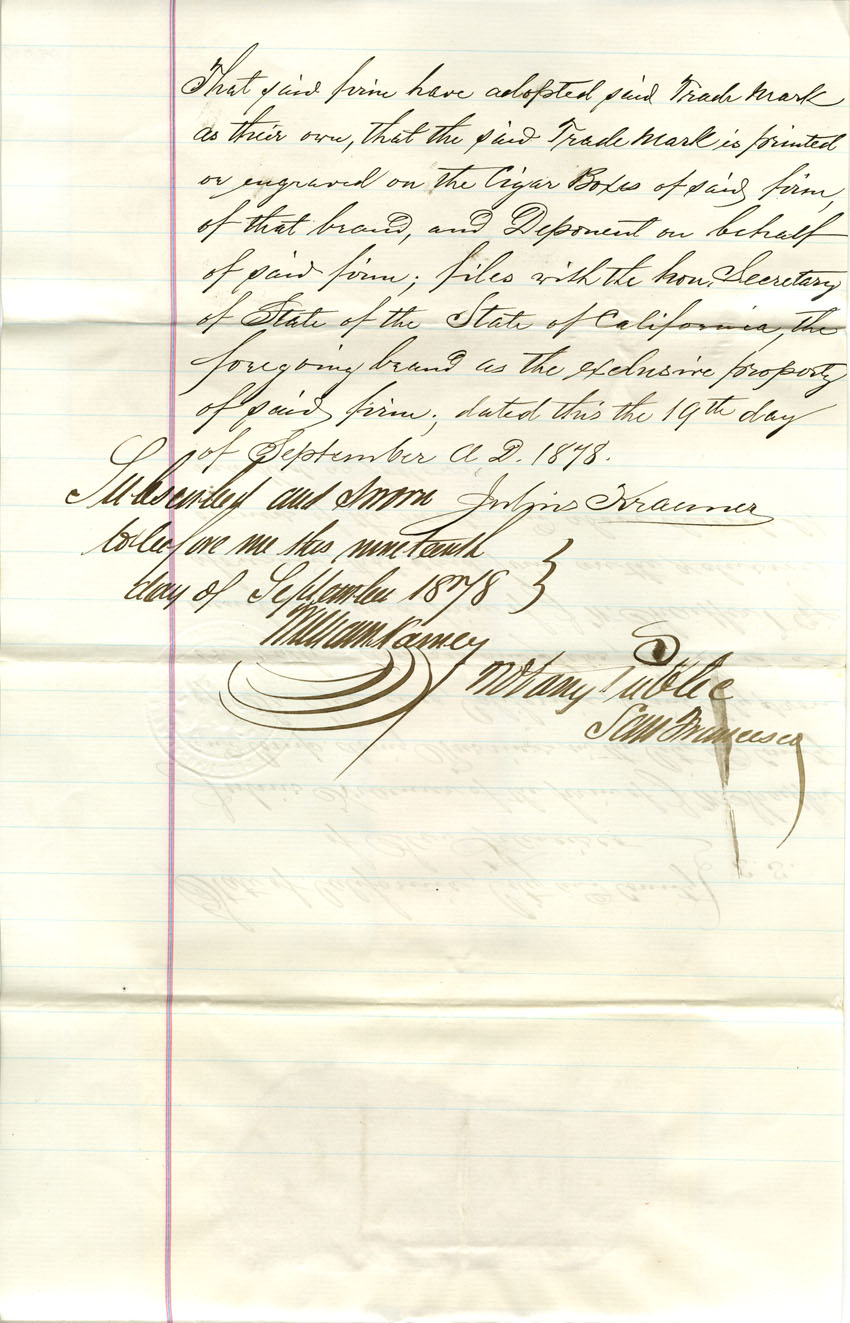 That said firm have adopted said Trade Mark
as their own, that the said Trade Mark is printed
or engraved on the Cigar Boxes of said firm,
of that brand, and Deponent on behalf
of said firm; files with the hon. Secretary
of State of the State of California, the
foregoing brand as the exclusive property
of said firm; dated this the 19th day
of September A D. 1878.
Subscribed and sworn Julius Kraemer
to before me this nineteenth
day of September 1878 }
William
Notary Public
San Francisco